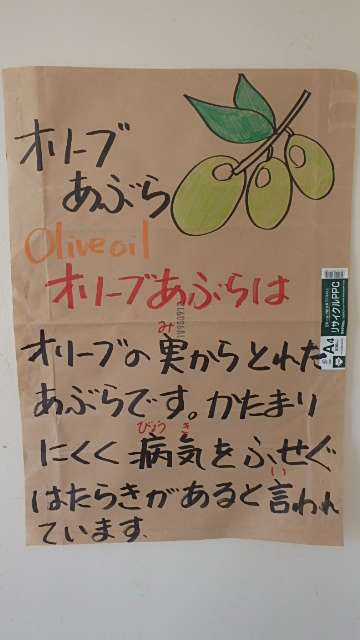 オリーブ
あぶら
Olive oil
オリーブあぶらは
み
オリーブの実からとれた
あぶらです。かたまり
びょう き
にくく病気をふせぐ
い
はたらきがあると言われ
ています.
リサイクルPPC
A4